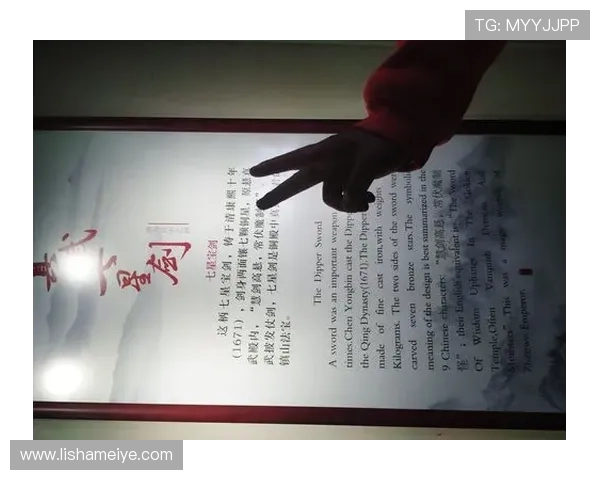 TG: MYYJJPP
星剑
七星宝剑
这柄七星宝剑，铸于清康熙十年
（1671），剑身两面镶七颗铜星，原悬真
武殿内，“慧剑高悬，常伏魔
武披发仗剑，七星剑是铜殿中真
镇山法宝。
The Dipper Sword
A sword was an important weapon
times.Chen Yongbin cast the Dipper
the Qing Dynasty(1671).The Dipper
made of fine cast iron,with weights
Kilograms. The two sides of the sword were
carved seven bronze stars.The symbolic
meaning of the design is best summarized in the
9 Chinese characters, “慧剑高悬，常伏魔
怪”; their English equivalent is, "The Sword
Of Wisdom Uphung In The Golden
Temple,Often Vanquish Demons And
Monsters". This was a magic sword of
Zhenwu Emperor.
www.lishameiye.com